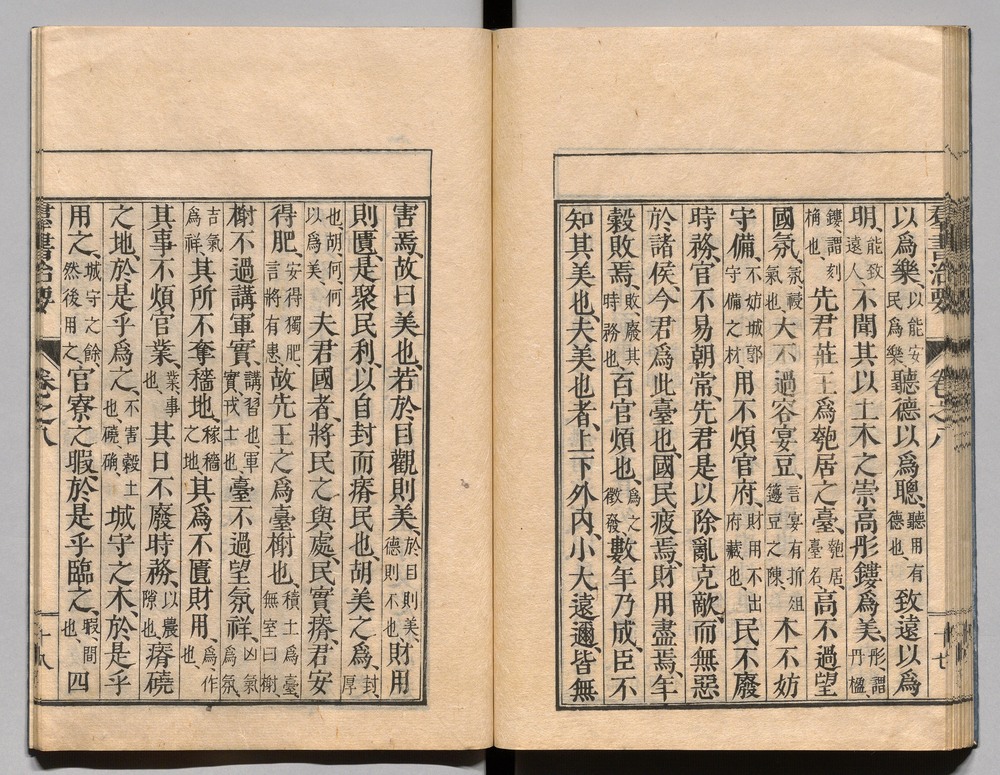 羣書治要 卷之八 十七
以爲樂、以能安民爲樂聽德以爲聰、聽用有德也、致遠以爲
明、能致遠人、不聞其以土木之崇高彤鏤爲美、彤、謂丹楹、
鏤、謂刻桷也、先君莊王爲匏居之臺、匏居、臺名、高不過望
國氛、氛、祲氣也、大不過容宴豆、言宴有折俎籩豆之陳、木不妨
守備、不妨城郭守備之材、用不煩官府、財用不出府藏也、民不廢
時務、官不易朝常、先君是以除亂克敵、而無惡
於諸侯、今君爲此臺也、國民疲焉、財用盡焉、年
穀敗焉、敗、廢其時務也、百官煩也、爲之徵發、數年乃成、臣不
知其美也、夫美也者、上下外內、小大遠邇、皆無
害焉、故曰美也、若於目觀則美、於目則美、德則不也、財用
則匱、是聚民利、以自封而瘠民也、胡美之爲、封、厚
也、胡、何、何以爲美、夫君國者、將民之與處、民實瘠、君安
得肥、安得獨肥、言將有患、故先王之爲臺榭也、積土爲臺、無室曰榭、
榭不過講軍實、講習也、軍實戎士也、臺不過望氛祥、凶氣爲氛、
吉氣爲祥其所不奪穡地、稼穡之地、其爲不匱財用、爲、作也、
其事不煩官業、業、事也、其日不廢時務、以農隙也、瘠磽
之地、於是乎爲之、不害穀土也磽确、城守之木、於是乎
用之、城守之餘、然後用之、官寮之暇、於是乎臨之、暇、間也、四
羣書治要 卷之八 十八